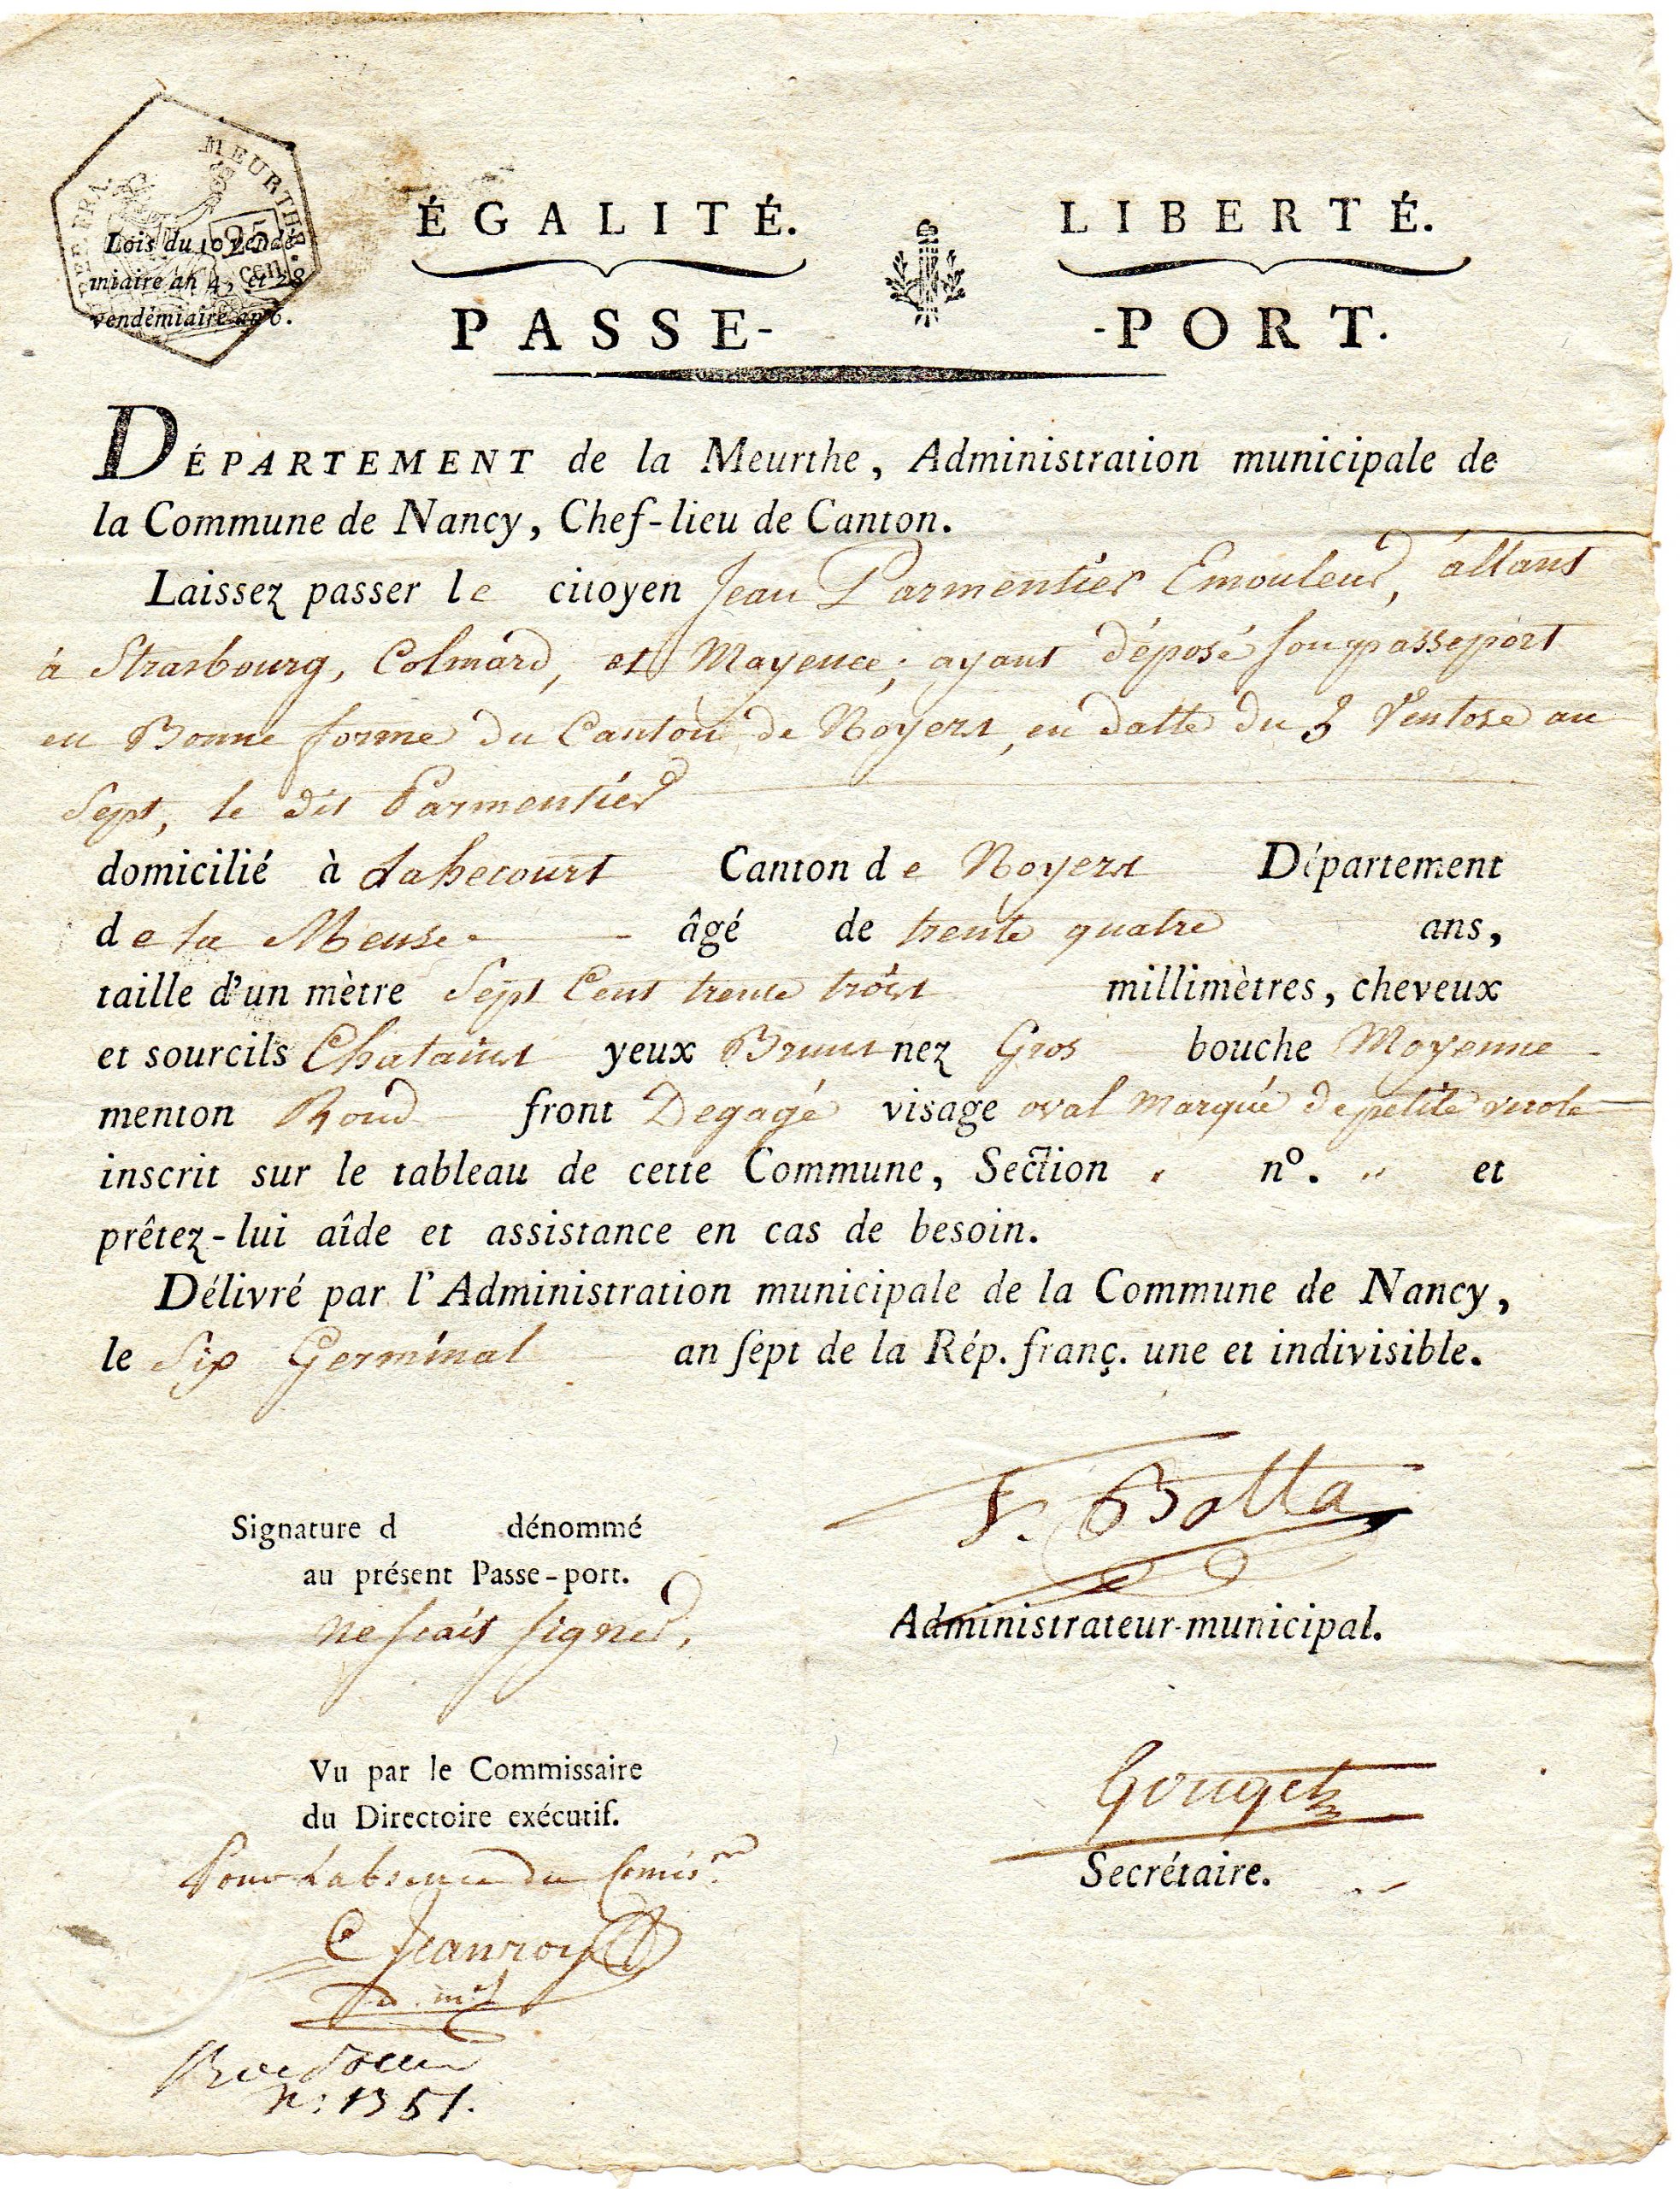 MEURTHE.
RÉP. FRA.
25
cen.
Lois du 10 vendé-
miaire an 4, et 28
vendémiaire an 6.
ÉGALITÉ. LIBERTÉ.
PASSE- -PORT.
DÉPARTEMENT de la Meurthe, Administration municipale de
la Commune de Nancy, Chef-lieu de Canton.
Laissez passer le citoyen Jean Parmentier Emouleur, allant
à Strasbourg, Colmard, et Mayence; ayant déposé son passeport
en Bonne forme du Canton de Noyers, en datte du 3 Ventose an
Sept, le dit Parmentier
domicilié à Lahecourt Canton de Noyers Département
de la Meuse âgé de trente quatre ans,
taille d'un mètre Sept Cent trente trois millimètres, cheveux
et sourcils Chatains yeux Bruns nez Gros bouche Moyenne
menton Rond front Degagé visage oval marqué de petite verole
inscrit sur le tableau de cette Commune, Section " nº. " et
prêtez-lui aîde et assistance en cas de besoin.
Délivré par l'Administration municipale de la Commune de Nancy,
le Six Germinal an ſept de la Rép. franç. une et indivisible.
F. Botta
Signature d dénommé
au présent Passe-port.
Administrateur-municipal.
ne scait signer,
Vu par le Commissaire
du Directoire exécutif.
Gouget
Secrétaire.
Pour l'absence du Comis.re
C Jeanroy
N: 1351.